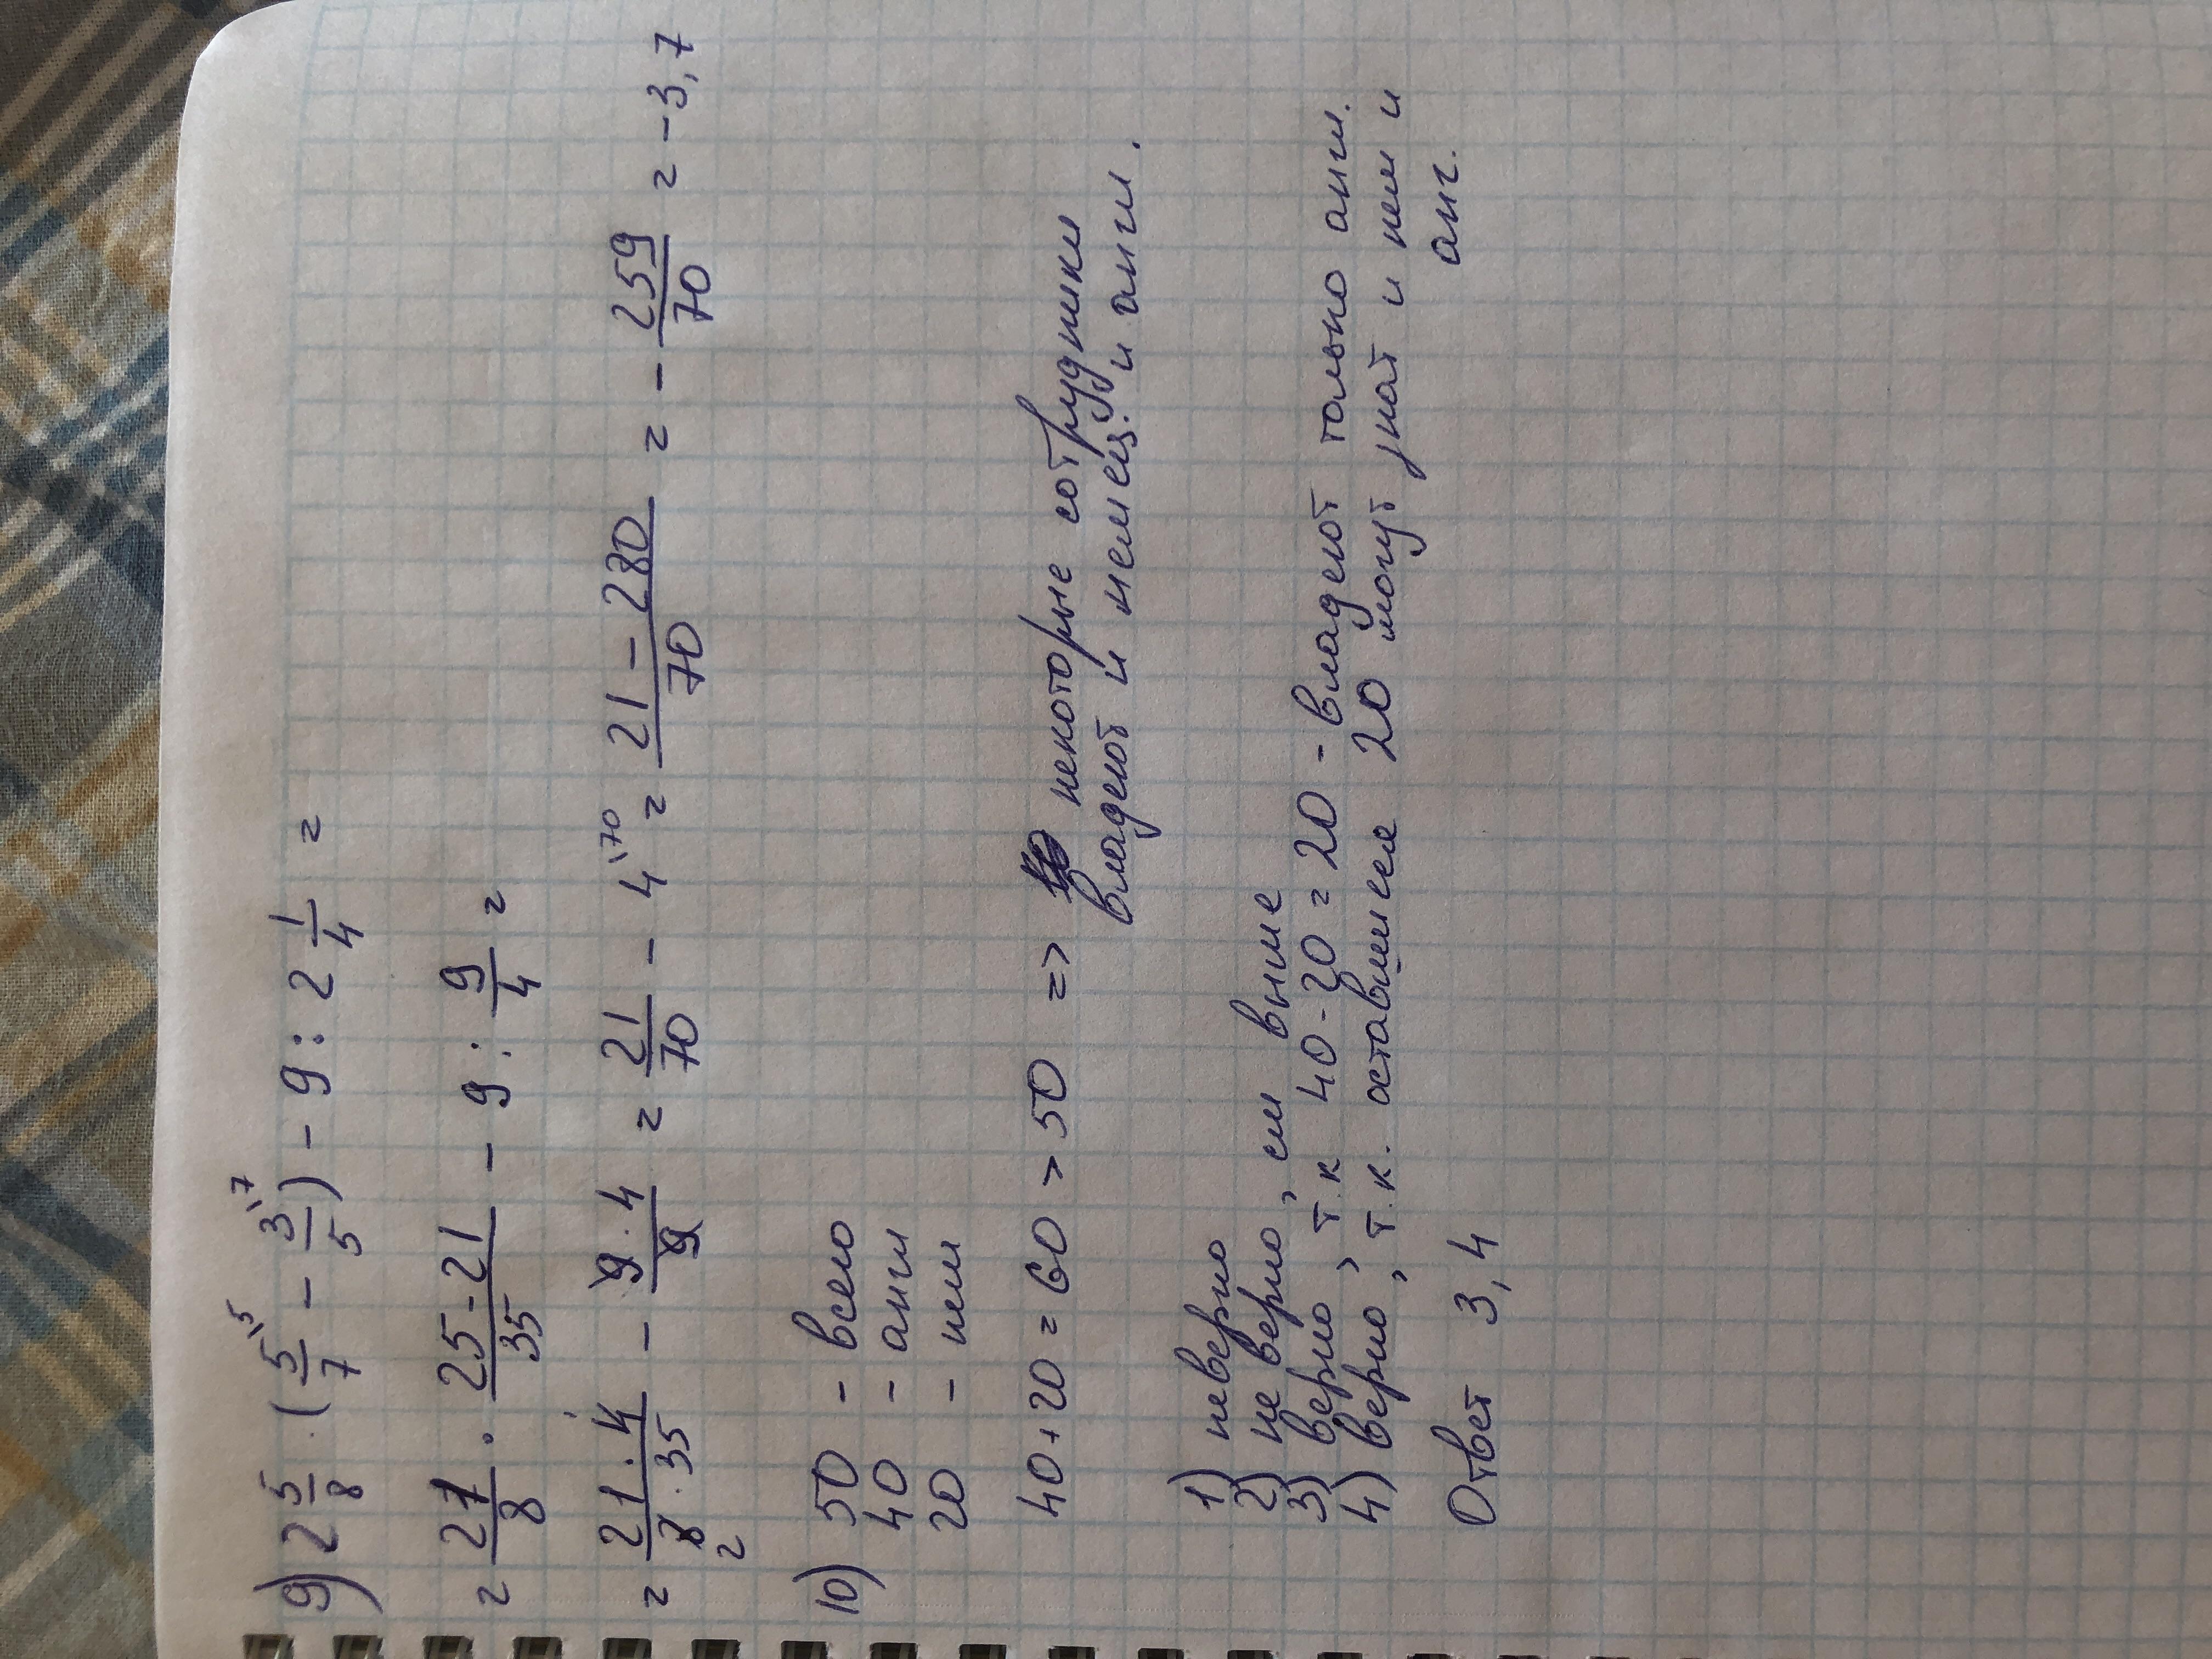 9) 2 5/8 · (5/7 \5 − 3/5 \7) − 9 : 2 1/4 =
= 21/8 · (25 - 21)/35 − 9 : 9/4 =
= (21 · 4)/(8 · 35) 2 − (9 · 4)/9 = 21/70 − 4 \70 = (21 − 280)/70 = − 259/70 = −3,7
10) 50 − всего
40 − англ
20 − нем
40 + 20 = 60 > 50 => некоторые сотрудники
владеют и немец. и англ.
1) неверно
2) не верно, см выше
3) верно, т.к 40 - 20 = 20 - владеют только англ.
4) верно, т.к. оставшиеся 20 могут знат и нем и
анг.
Ответ 3,4